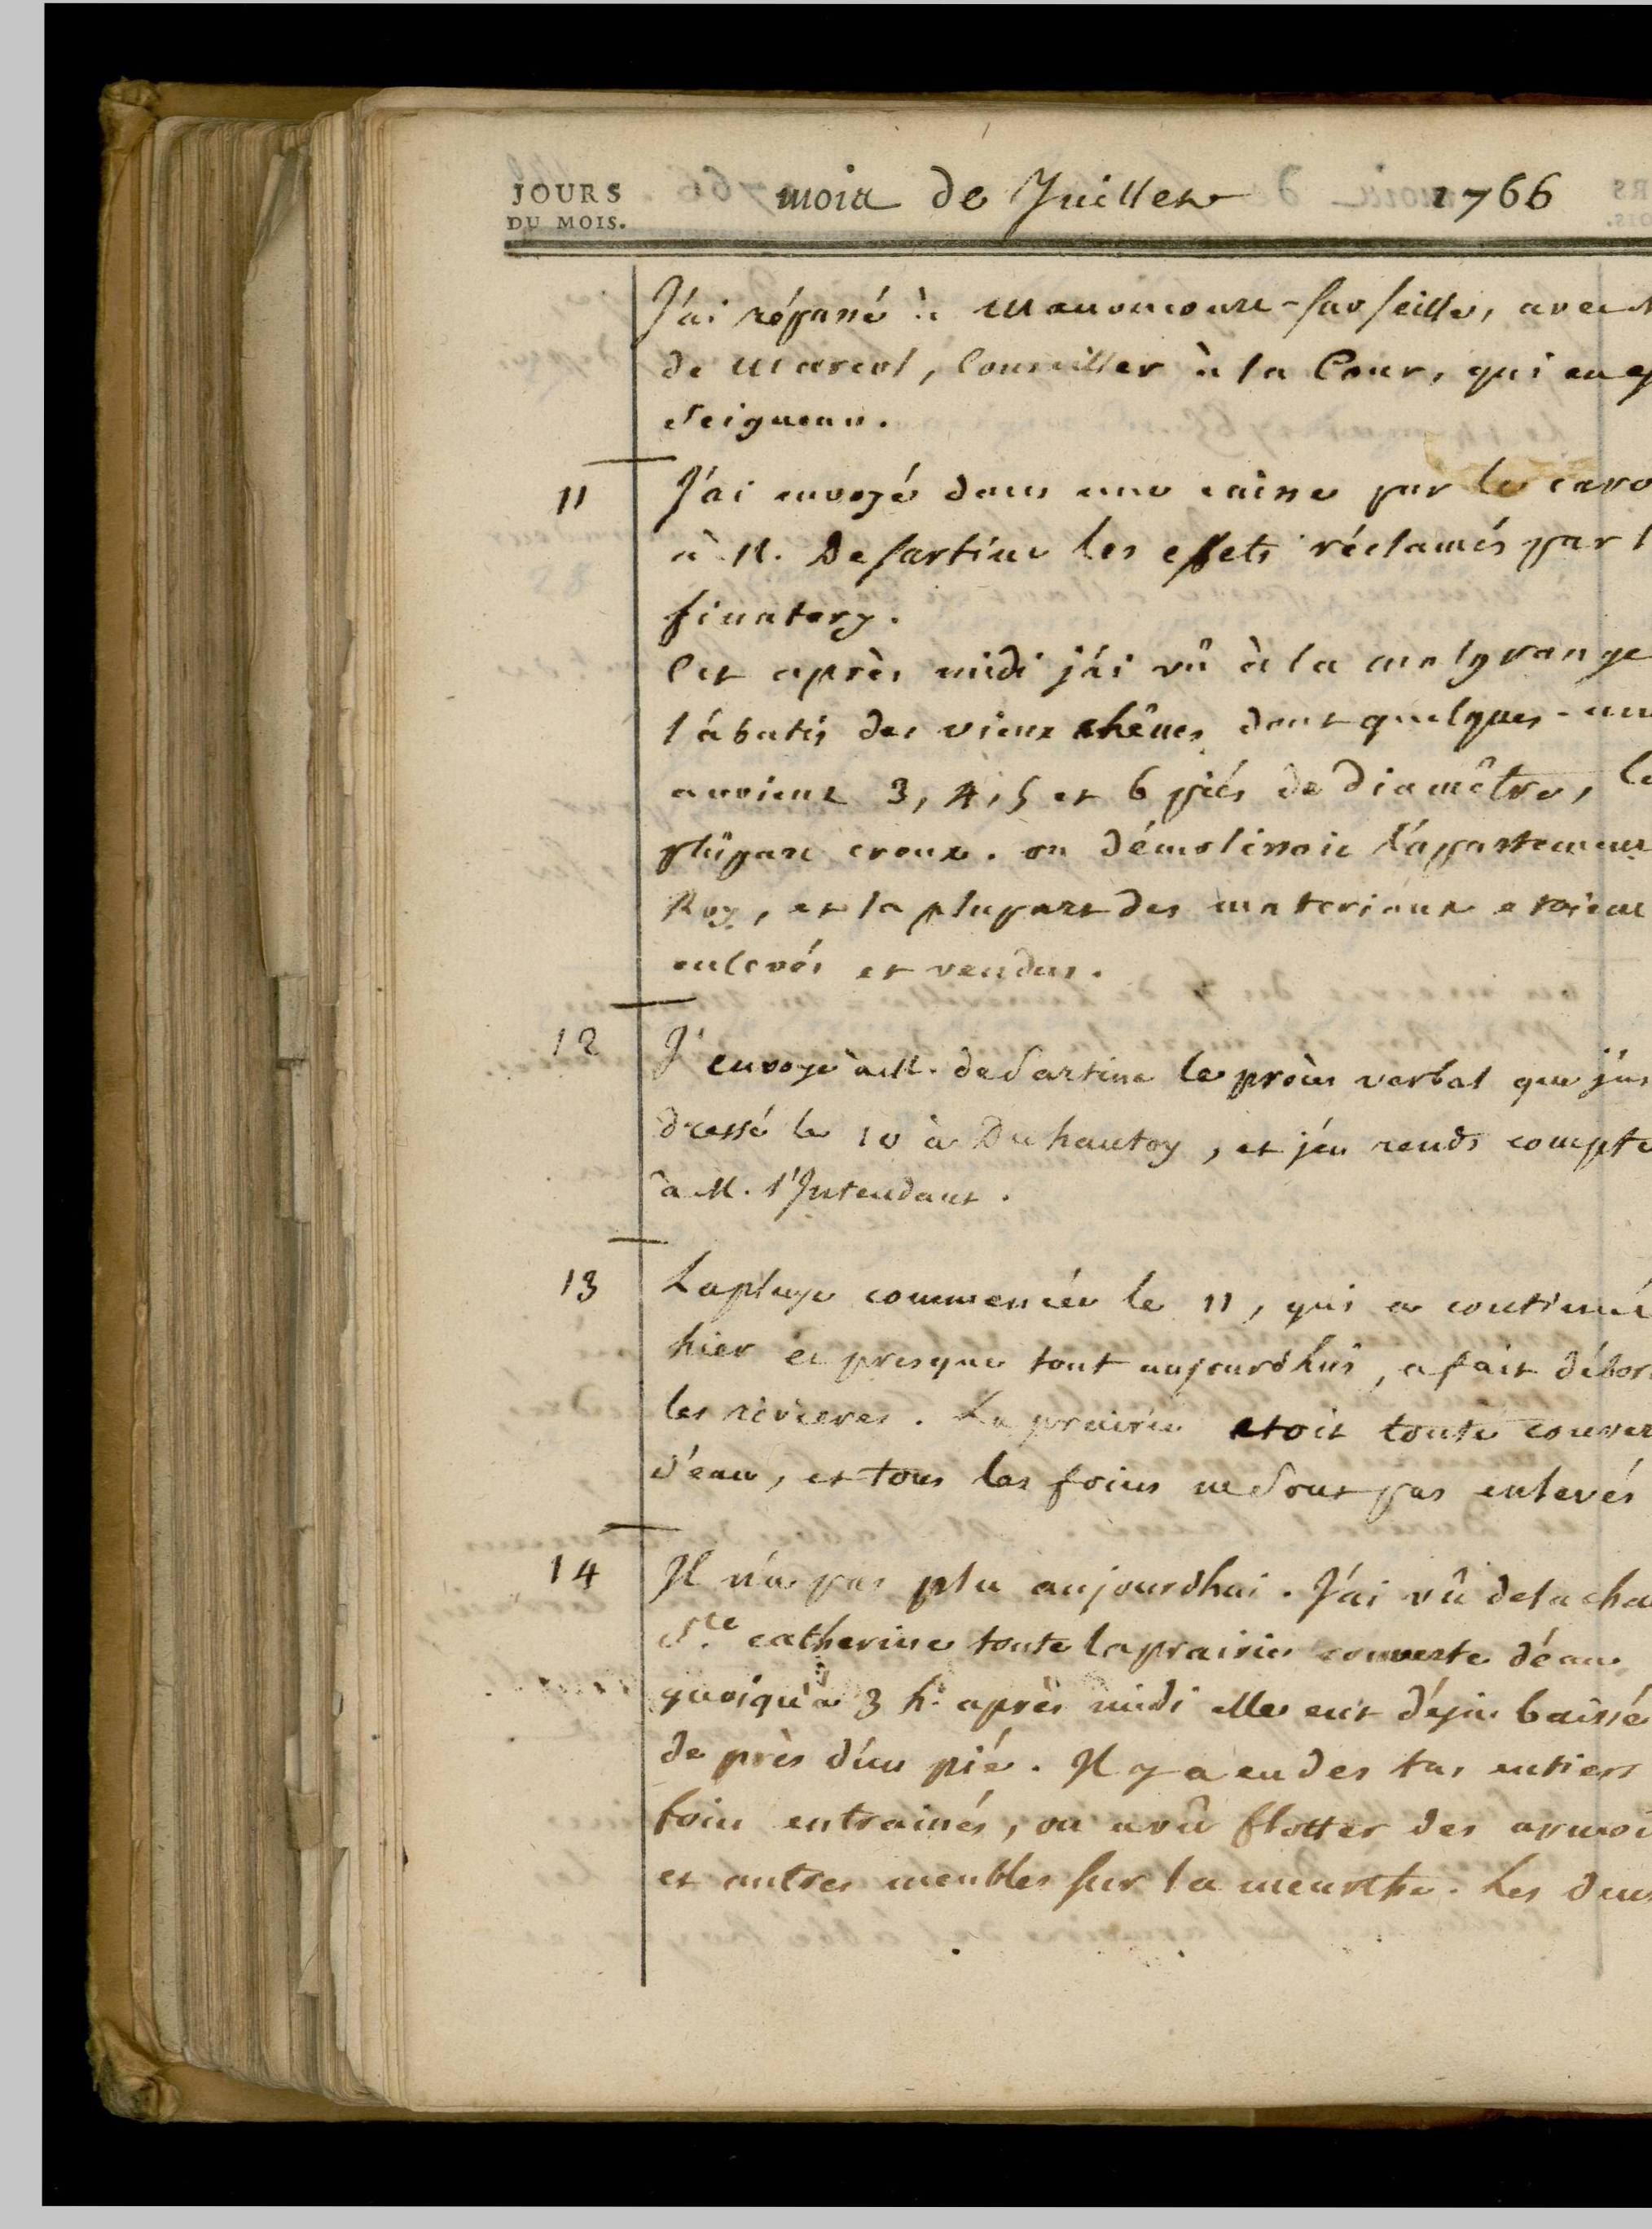 JOURS
DU MOIS.
mois de Juillet 1766
J'ai répassé à Manoncourt-sur seille, avec
de Marcol, Conseiller à la Cour, qui en
seigneur.
11 J'ai envoyé dans une caisse par le caro
à M. De sartine les effets réclamés par l
finatery.
Cet après midi j'ai vû à la malgrange
l'abatis des vieux chênes dont quelques-un
avoient 3, 4, 5 et 6 piés de diamêtre, la
plûpart creux. on démolissoit l'appartement
Roy, et la plupart des materiaux etoient
enlevés et vendus.
12 J'envoye à M. de Sartine le procès verbal que j'us
dressé le 10 à Du hautoy, et j'en rends compte
à M. l'Intendant.
13 La pluye commencée le 11, qui a continué
hier et presque tout aujourdhui, a fait débor
les rivieres. La prairie etoit toute couver
d'eau, et tous les foins ne sont pas enlevés
14 Il n'a pas plu aujourdhui. J'ai vû de la cha
Ste catherine toute la prairie couverte d'eau
quoiqu'à 3 h. après midi elle eut déjà baissé
de près d'un pié. Il y a eu des tas entiers
foin entrainés, on a vû flotter des armoi
et autres meubles sur la meurthe. Les deux